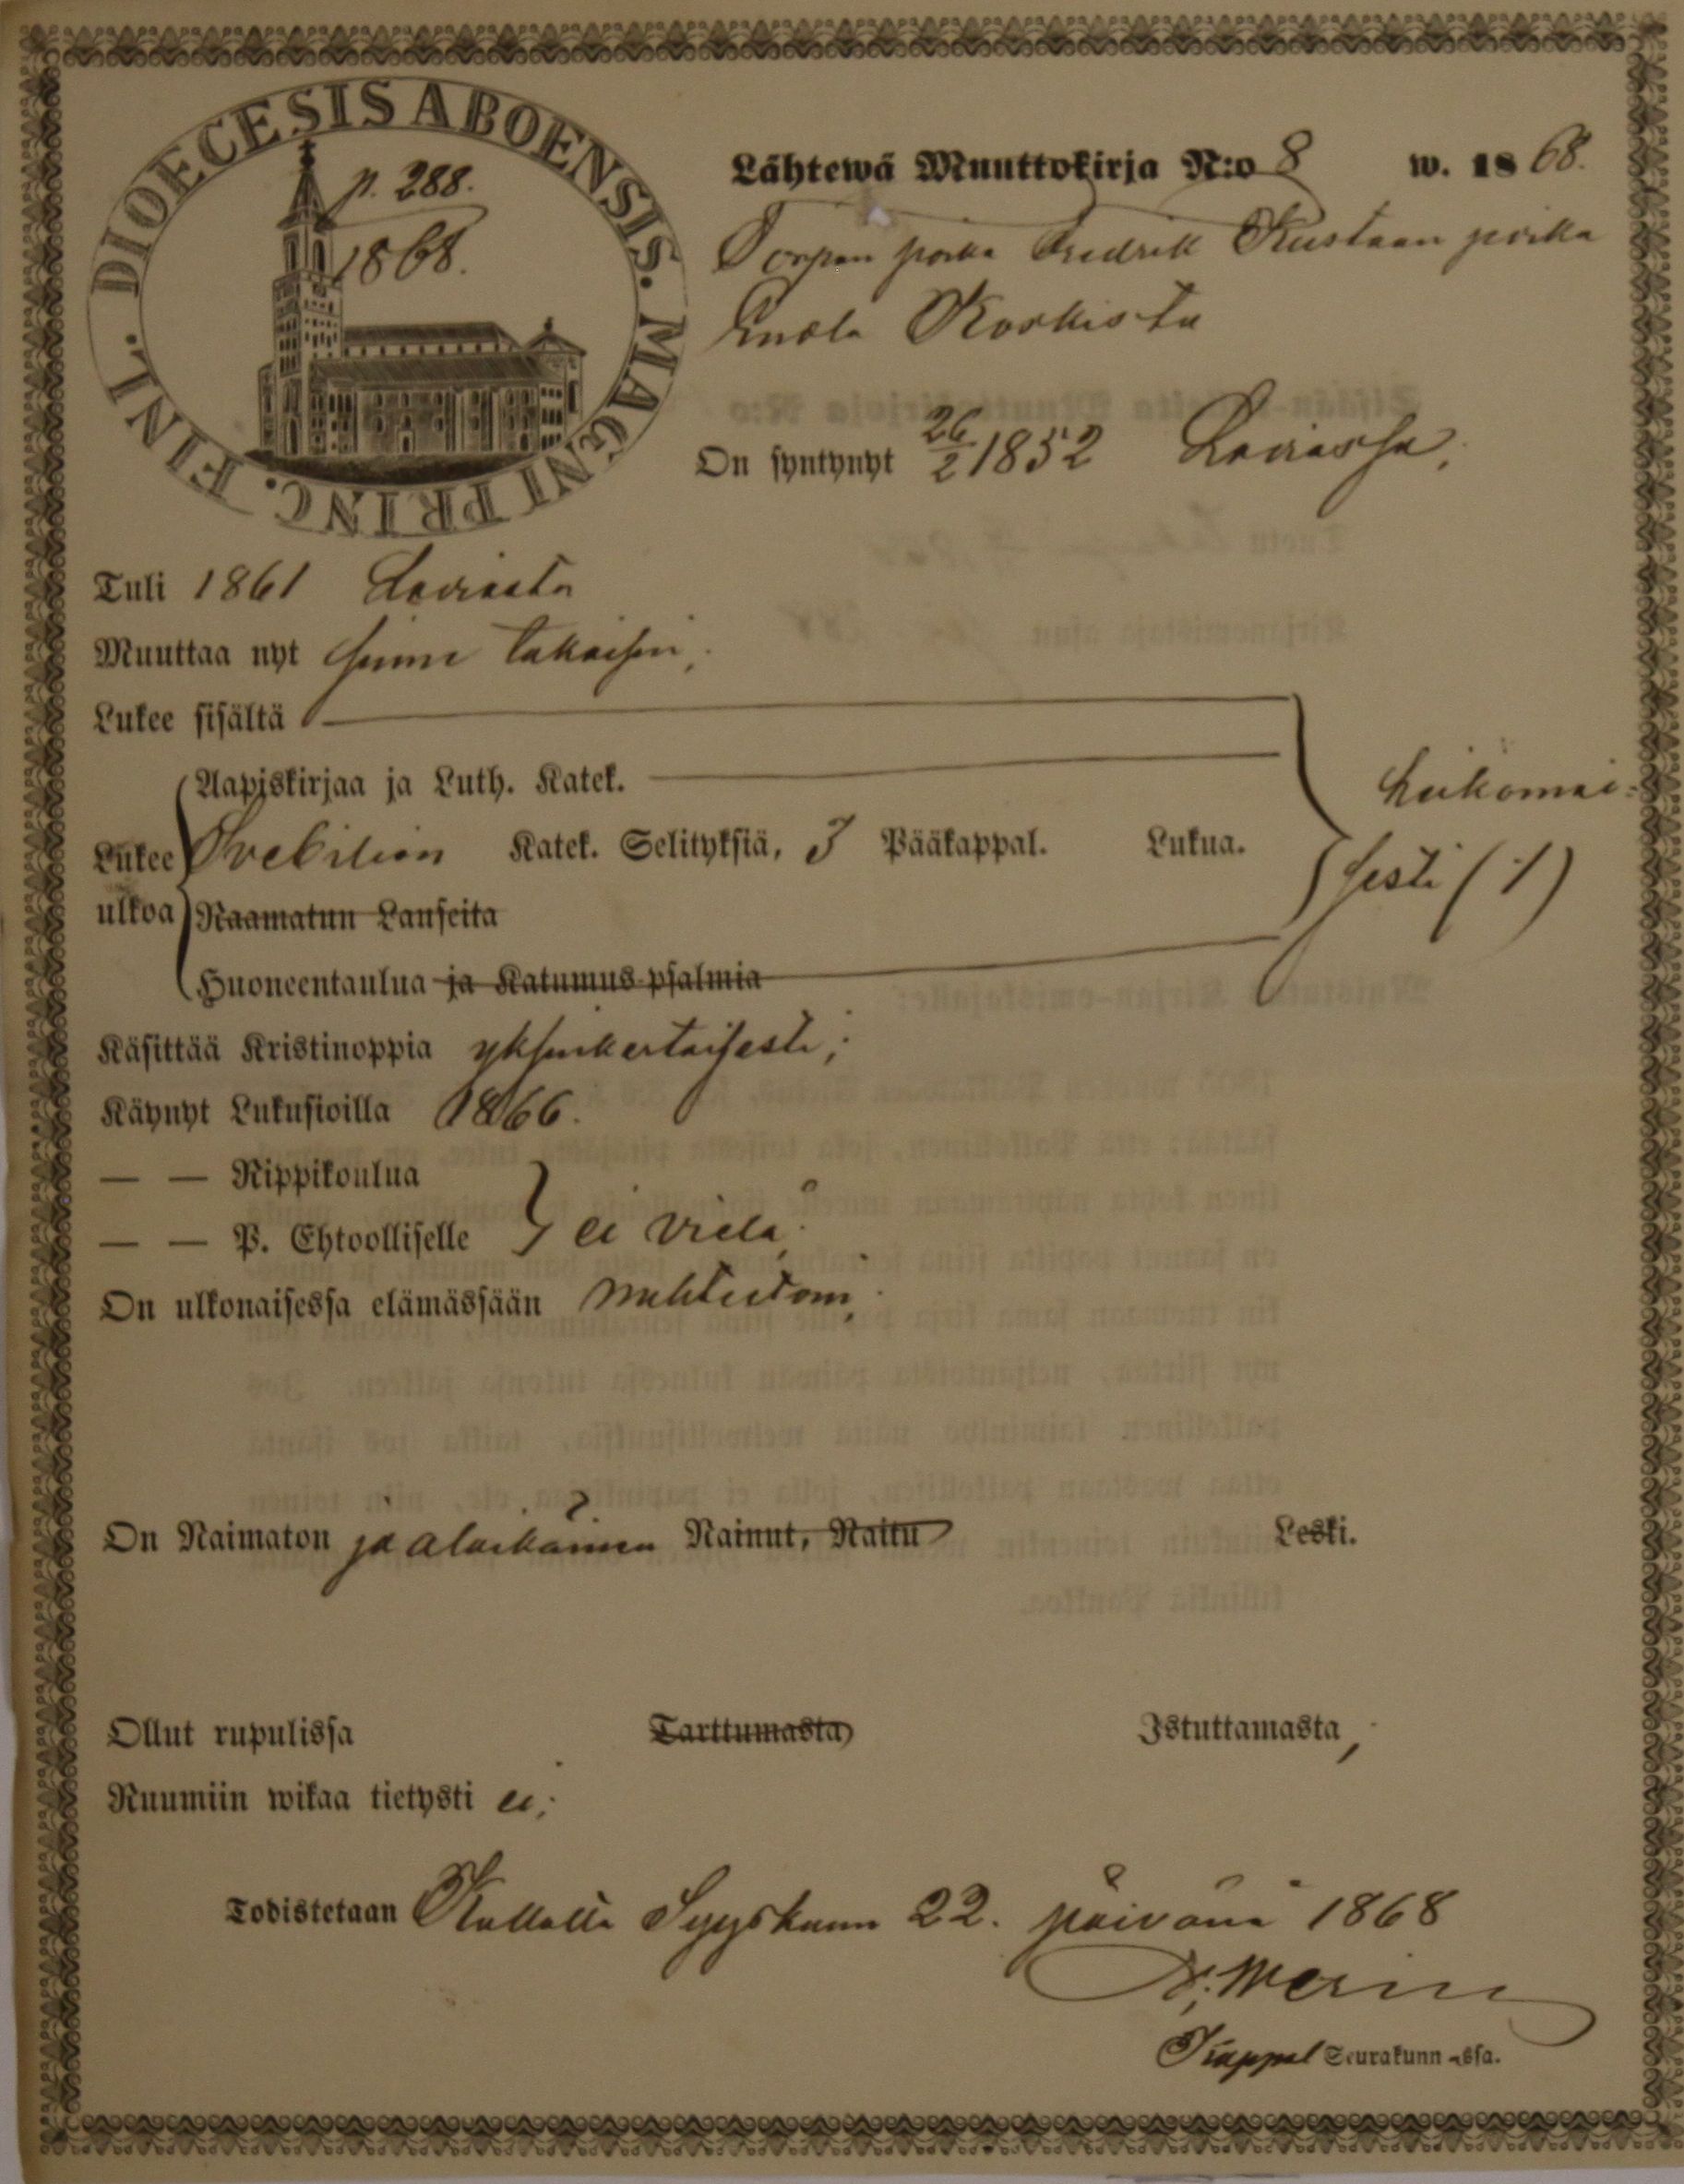 DIOECESIS ABOENSIS. MAGNI PRINC. FINL.
p. 288.
1868.
Lähtewä Muuttokirja N:o 8 w. 1868.
Torpan poika Fredrik Kustaan poika
Knola Koskista
On syntynyt 26/2 1852 Laviassa,
Tuli 1861 Laviasta
Muuttaa nyt sinne takaisin,
Lukee sisältä
Aapiskirjaa ja Luth. Katek.
Lukee ulkoa Svebiliuin Katek. Selityksiä, 3 Pääkappal. Lukua.
Raamatun Lauseita
Huoneentaulua ja Katumus-psalmia
heikomai-
sesti (1/.)
Käsittää Kristinoppia yksinkertaisesti;
Käynyt Lukusioilla 1866.
— — Rippikoulua
— — P. Ehtoolliselle } ei vielä;
On ulkonaisessa elämässään nuhteetoin;
On Naimaton ja alaikäinen Nainut, Naitu Leski.
Ollut rupulissa Tarttumasta Istuttamasta,
Ruumiin wikaa tietysti ei;
Todistetaan Kullalla Syyskuun 22. päivänä 1868
Kappel Seurakunn-ssa.